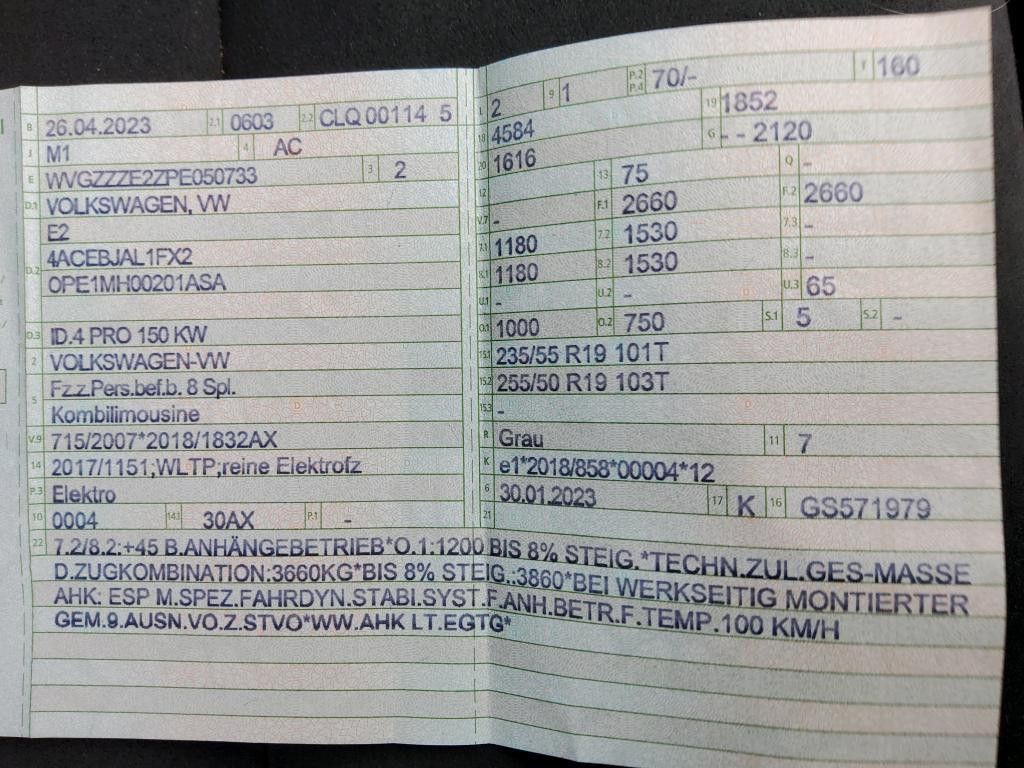 B 26.04.2023 2.1 0603 2.2 CLQ00114 5
J M1 4 AC
E WVGZZZE2ZPE050733 3 2
D.1 VOLKSWAGEN, VW
E2
D.2 4ACEBJAL1FX2
OPE1MH00201ASA
D.3 ID.4 PRO 150 KW
2 VOLKSWAGEN-VW
5 Fz.z.Pers.bef.b. 8 Spl.
Kombilimousine
V.9 715/2007*2018/1832AX
14 2017/1151;WLTP;reine Elektrofz
P.3 Elektro
10 0004 14.1 30AX P.1 -
L 2 9 1 P.2 P.4 70/- T 160
18 4584 19 1852
20 1616 G - - 2120
12 13 75 Q -
V.7 - F.1 2660 F.2 2660
7.1 1180 7.2 1530 7.3 -
8.1 1180 8.2 1530 8.3 -
U.1 - U.2 - U.3 65
O.1 1000 O.2 750 S.1 5 S.2 -
15.1 235/55 R19 101T
15.2 255/50 R19 103T
15.3 -
R Grau 11 7
K e1*2018/858*00004*12
6 30.01.2023 17 K 16 GS571979
21
22 7.2/8.2:+45 B.ANHÄNGEBETRIEB*O.1:1200 BIS 8% STEIG.*TECHN.ZUL.GES-MASSE
D.ZUGKOMBINATION:3660KG*BIS 8% STEIG.:3860*BEI WERKSEITIG MONTIERTER
AHK: ESP M.SPEZ.FAHRDYN.STABI.SYST.F.ANH.BETR.F.TEMP.100 KM/H
GEM.9.AUSN.VO.Z.STVO*WW.AHK LT.EGTG*